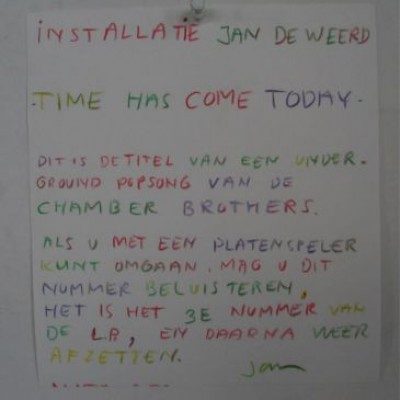 iNSTALLATIE JAN DE WEERD
·TIME HAS COME TODAY·
DIT IS DE TITEL VAN EEN UNDER-
GROUND POPSONG VAN DE
CHAMBER BROTHERS.
ALS U MET EEN PLATENSPELER
KUNT OMGAAN, MAG U DIT
NUMMER BELUISTEREN,
HET IS HET 3E NUMMER VAN
DE LP, EN DAARNA WEER
AFZETTEN.
Jan